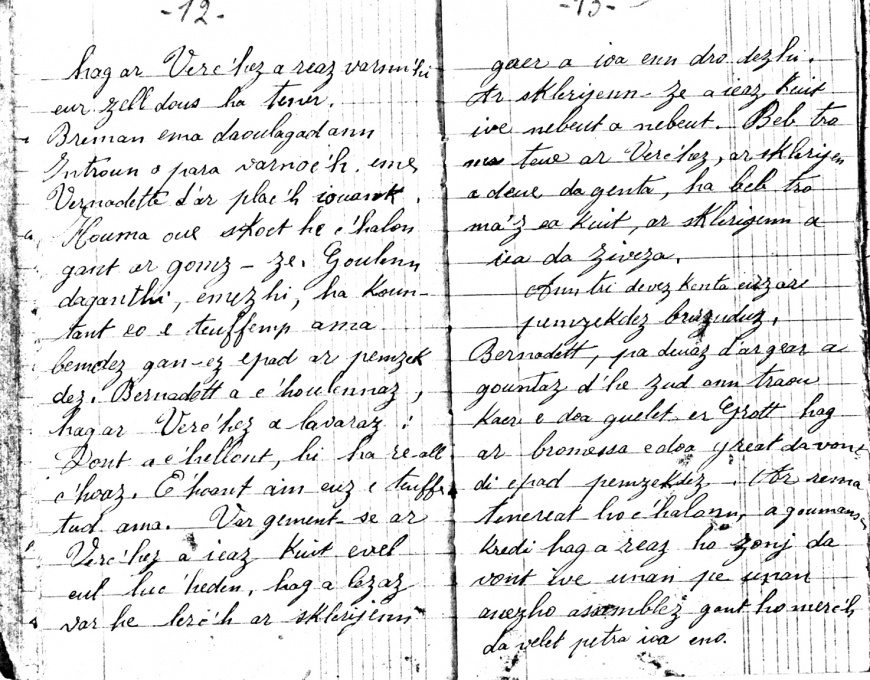 -12-
hag ar Verc'hez a reaz varnn'hi
eur zell dous ha tener.
Breman ema daoulagad ann
Introun o para varnoc'h, eme
Vernadette d'ar plac'h iouank.
Houma oue skoet he c'halon
gant ar gomz-ze. Goulenn
daganthi, emezhi, ha koun-
tant eo e teuffemp ama
bemdez gan-ez epad ar pemzek
dez. Bernadett a c'houlennaz,
hag ar Verc'hez a lavaraz :
Dont a c'hellont, hi ha re all
c'hoaz. C'hoant am euz e teuffe
tud ama. Var gement-se ar
Verc'hez a ieaz kuit evel
eul luc'heden, hag a lezaz
var he lerc'h ar sklerijenn
-13-
gaer a ioa enn dro dezhi.
Ar sklerijenn-ze a ieaz kuit
ive nebeut a nebeut. Beb tro
ma teue ar Verc'hez, ar sklerijen
a deue da genta, ha beb tro
ma'z ea kuit, ar sklerijenn a
iea da ziveza.
Ann tri devez kenta euz are
pemzekdez burzuduz.
Bernadett, pa deuaz d'ar gear a
gountaz d'he zud ann traou
kaer e doa guelet er Grott hag
ar bromessa e doa great da vont
di epad pemzekdez. Ar re-ma
tenereat ho c'halonn, a goumans
kredi hag a reaz ho zonj da
vont ive unan pe unan
anezho assemblez gant ho merc'h
da velet petra ioa eno.